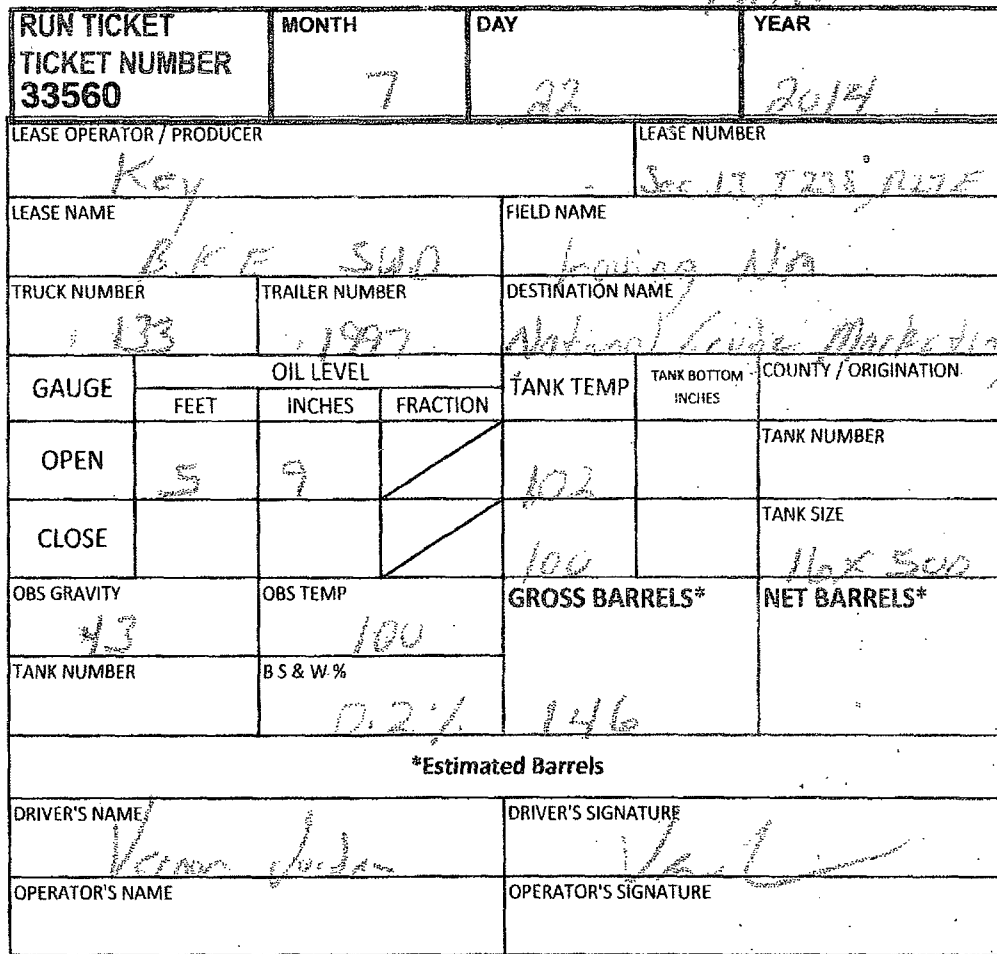 RUN TICKET
TICKET NUMBER
33560
MONTH
7
DAY
22
YEAR
2014
LEASE OPERATOR / PRODUCER
Key
LEASE NUMBER
Sec 13, T23S, R27E
LEASE NAME
B.K.E SWD
FIELD NAME
Loving NM
TRUCK NUMBER
133
TRAILER NUMBER
1997
DESTINATION NAME
National Crude Marketin
GAUGE
OIL LEVEL
FEET INCHES FRACTION
TANK TEMP
TANK BOTTOM
INCHES
COUNTY / ORIGINATION
OPEN 5 9 102
TANK NUMBER
CLOSE 100
TANK SIZE
16 x 500
OBS GRAVITY
43
OBS TEMP
100
GROSS BARRELS*
146
NET BARRELS*
TANK NUMBER
B S & W %
0.2%
*Estimated Barrels
DRIVER'S NAME
Vernon Jordan
DRIVER'S SIGNATURE
OPERATOR'S NAME
OPERATOR'S SIGNATURE